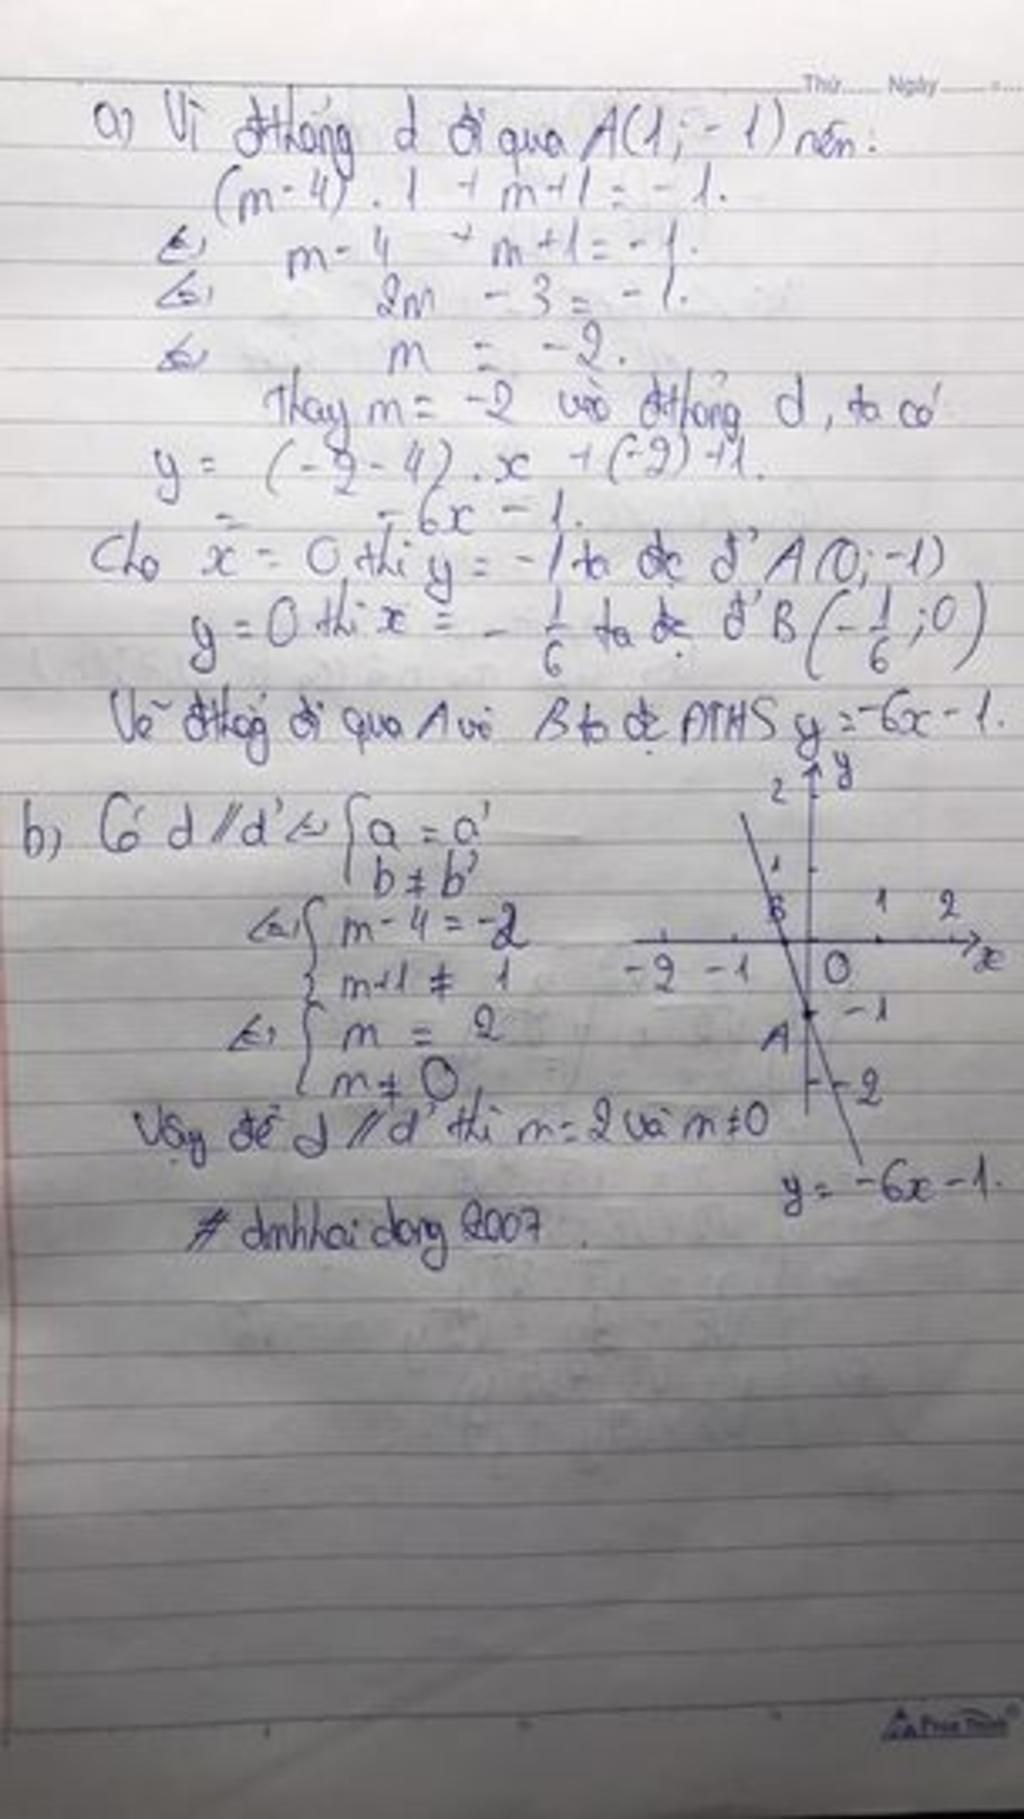 Thứ..... Ngày
a) Vì đthẳng d đi qua A(1; -1) nên:
(m-4).1 + m+1 = -1.
<=> m-4 + m+1 = -1.
<=> 2m - 3 = -1.
<=> m = -2.
Thay m = -2 vào đthẳng d, ta có
y = (-2-4).x + (-2)+1.
= -6x - 1.
Cho x = 0 thì y = -1 ta đc đ' A(0; -1)
y = 0 thì x = -1/6 ta đc đ' B(-1/6; 0)
Vẽ đthẳg đi qua A và B ta đc ĐTHS y = -6x - 1.
b) Có d // d' <=> { a = a'
b ≠ b'
<=> { m-4 = -2
m+1 ≠ 1
<=> { m = 2
m ≠ 0
Vậy để d // d' thì m = 2 và m ≠ 0
# dinhhaidang2007
y
2
1
B
1 2
-2 -1 O x
A -1
-2
y = -6x - 1.